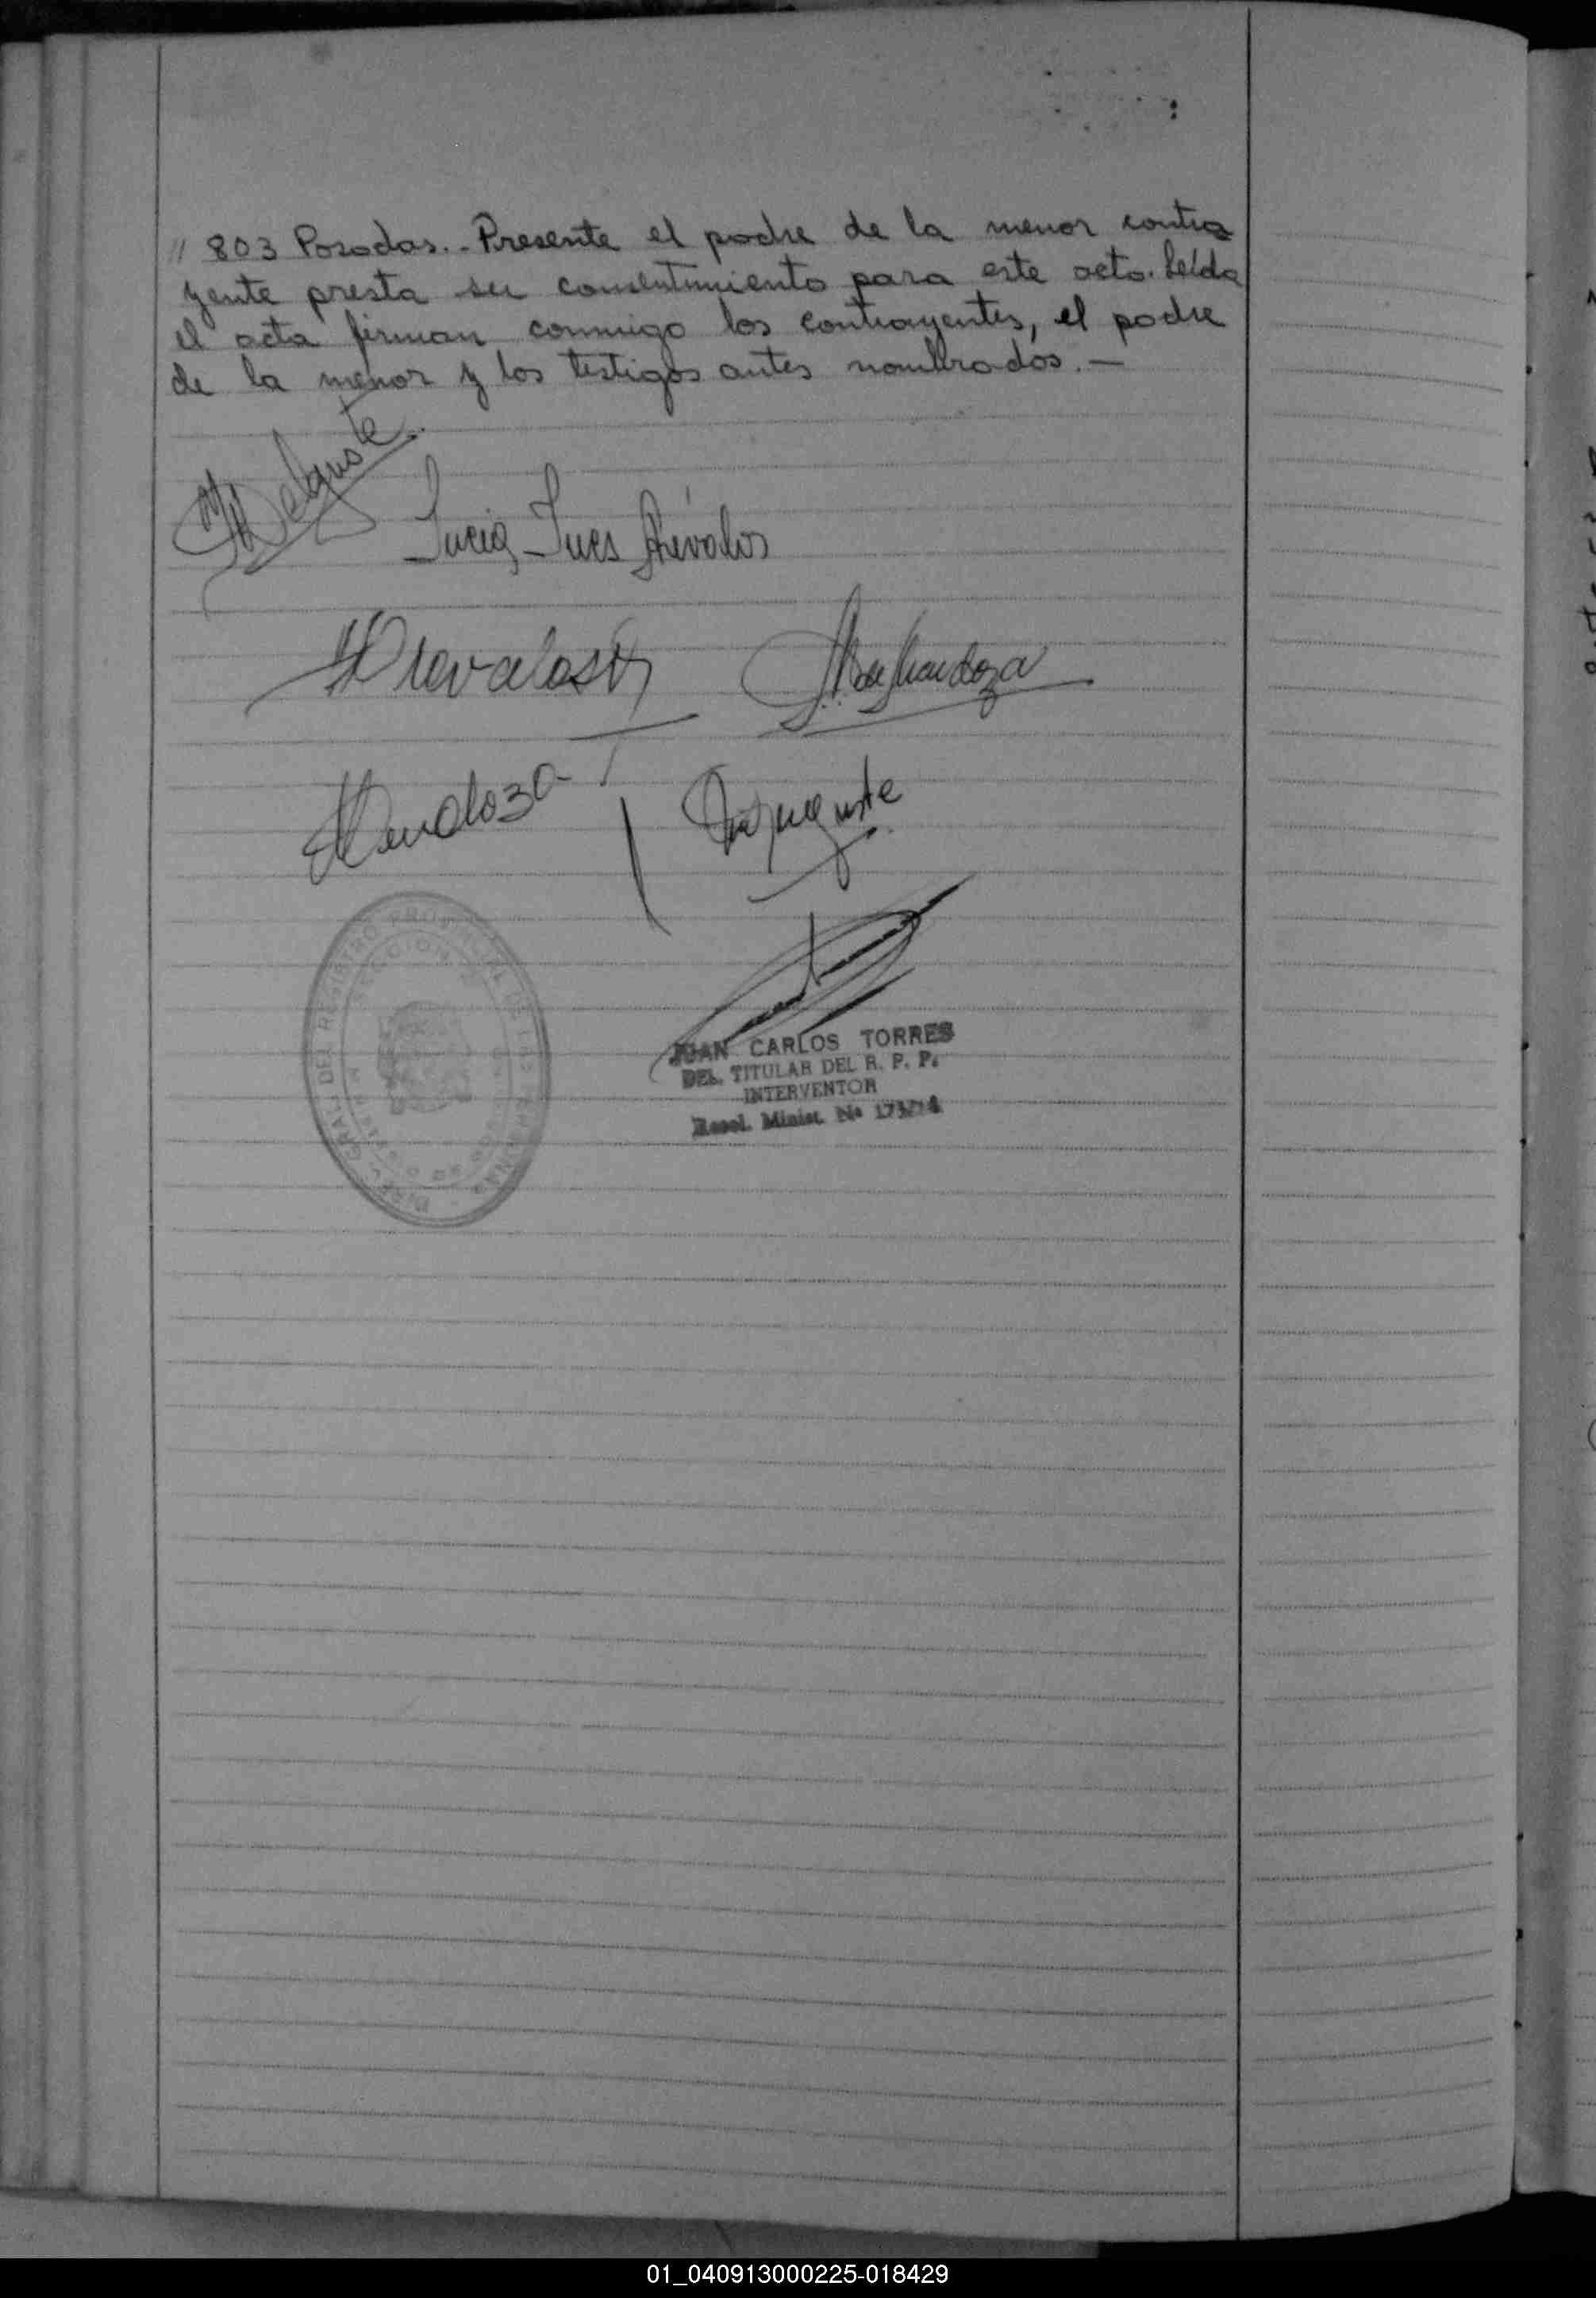 // 803 Posadas.- Presente el padre de la menor contra
yente presta su consentimiento para este acto. Leída
el acta firman conmigo los contrayentes, el padre
de la menor y los testigos antes nombrados. —
Lucia Ines Arévalos
Mendoza
DEL REGISTRO PROVINCIAL DE LAS PERSONAS
SECCION
JUAN CARLOS TORRES
DEL. TITULAR DEL R. P. P.
INTERVENTOR
Resol. Minist. Nº
01_040913000225-018429